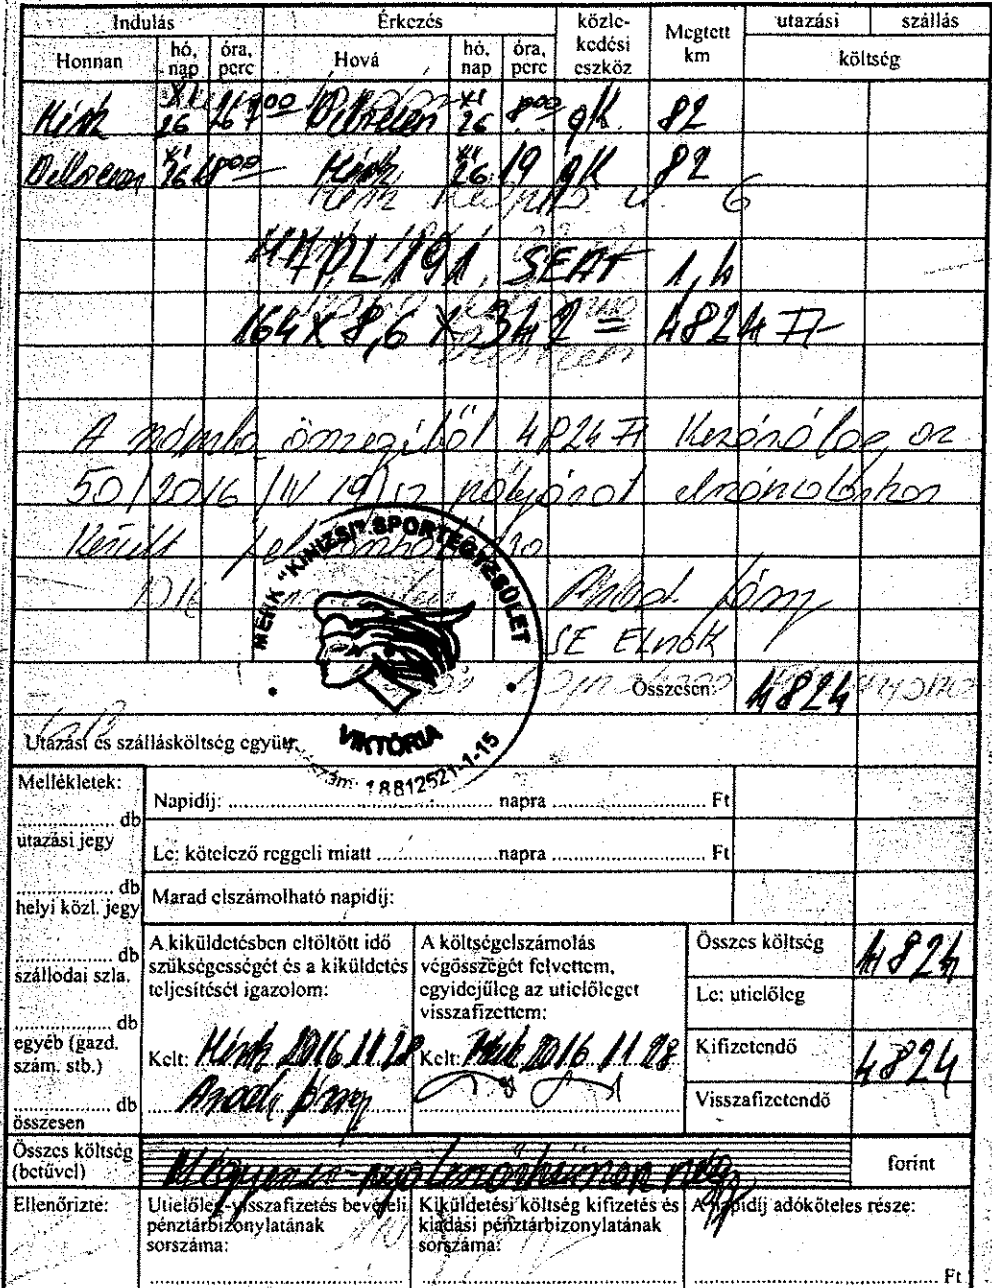 Indulás Érkezés közle-kedési eszköz Megtett km utazási szállás
Honnan hó, nap óra, perc Hová hó, nap óra, perc költség
Mérk XI 26 7 00 Debrecen XI 26 8 00 gk. 82
Debrecen XI 26 18 00 Mérk XI 26 19 gk 82
Mérk u. 6
191 SEAT 1,4
164 x 8,6 x 342 = 4824 Ft
A számla összegéből 4824 Ft az
50/2016
Került
2016
SE ELNÖK
MÉRK "KINIZSI" SPORTEGYESÜLET
VIKTÓRIA
18812521-1-15
Összesen: 4824
Utazási és szállásköltség együtt
Mellékletek:
.......... db
utazási jegy
.......... db
helyi közl. jegy
.......... db
szállodai szla.
.......... db
egyéb (gazd. szám. stb.)
.......... db
összesen
Napidíj: .......... napra .......... Ft
Le: kötelező reggeli miatt .......... napra .......... Ft
Marad elszámolható napidíj:
A kiküldetésben eltöltött idő
szükségességét és a kiküldetés
teljesítését igazolom:
Kelt: Mérk 2016.11.28
A költségelszámolás
végösszegét felvettem,
egyidejűleg az utielőleget
visszafizettem:
Kelt: Mérk 2016.11.28
Összes költség 4824
Le: utielőleg
Kifizetendő 4824
Visszafizetendő
Összes költség
(betűvel)
Négyezer-nyolcszázhuszonnégy
forint
Ellenőrizte:
Utielőleg-visszafizetés bevételi
pénztárbizonylatának
sorszáma:
Kiküldetési költség kifizetés és
kiadási pénztárbizonylatának
sorszáma:
A napidíj adóköteles része:
.......... Ft